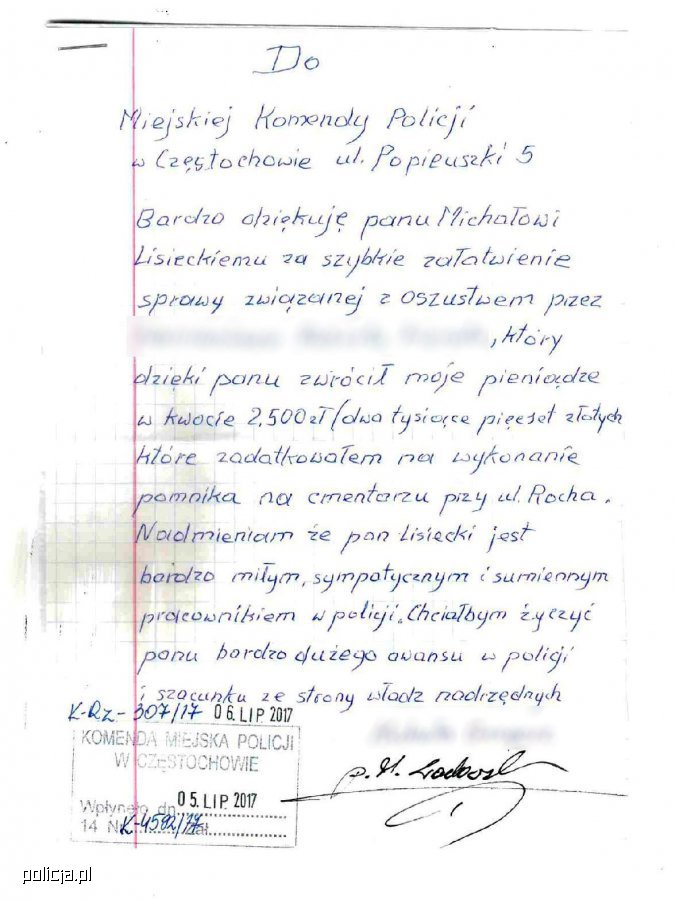 Do
Miejskiej Komendy Policji
w Częstochowie ul. Popiełuszki 5
Bardzo dziękuję panu Michałowi
Lisieckiemu za szybkie załatwienie
sprawy związanej z oszustwem przez
, który
dzięki panu zwrócił moje pieniądze
w kwocie 2,500 zł/dwa tysiące pięćset złotych
które zadatkowałem na wykonanie
pomnika na cmentarzu przy ul. Rocha.
Nadmieniam że pan Lisiecki jest
bardzo miłym, sympatycznym i sumiennym
pracownikiem w policji. Chciałbym życzyć
panu bardzo dużego awansu w policji
i szacunku ze strony władz nadrzędnych
K-Rz-307/17 06. LIP. 2017
KOMENDA MIEJSKA POLICJI
W CZĘSTOCHOWIE
Wpłynęło dn. 05. LIP. 2017
14 Nr K-4582/17 zał.
policja.pl